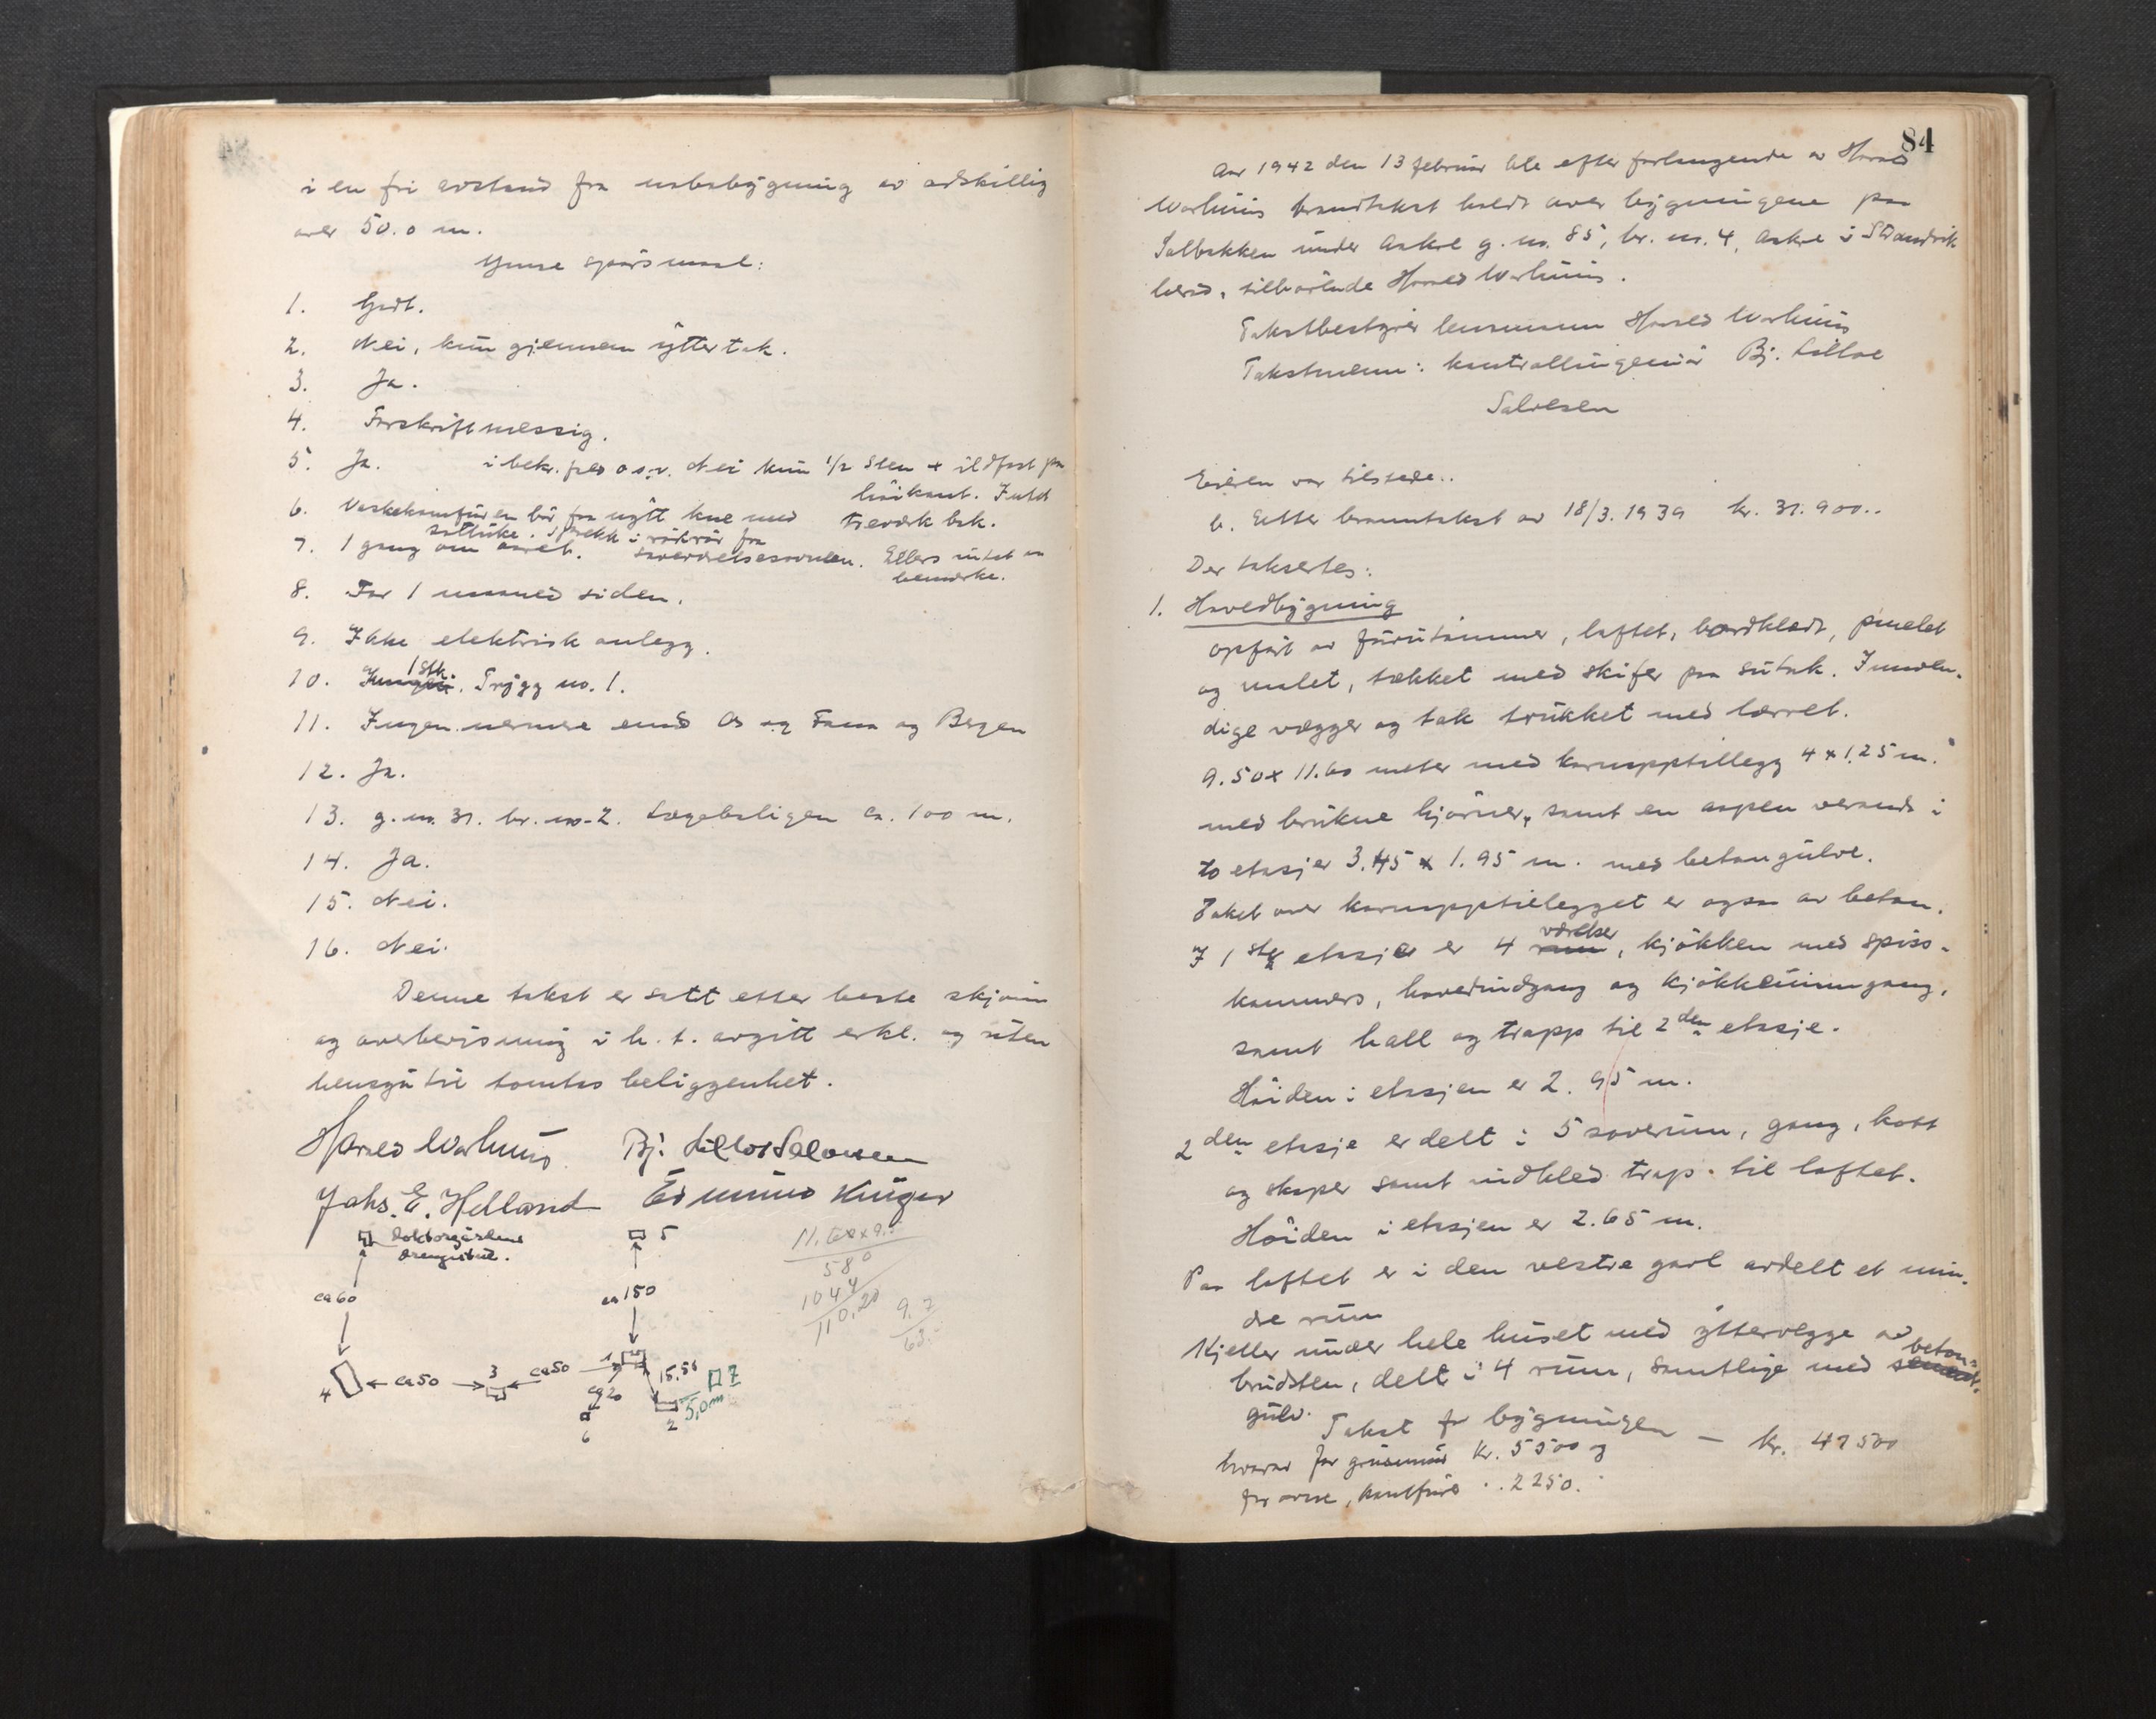 i en fri avstand fra nabobygning av adskillig
over 50.0 m.
Ymse spörsmaal:
1. Godt.
2. Nei, kun gjennem yttertak.
3. Ja.
4. Forskriftmessig.
5. Ja. i bekr. fald o.s.v. Nei kun 1/2 sten + ildfast paa
höikant. Intet
treverk bak.
6. Vaskekomfüren bör faa nytt kne med
sotluke. Sprekk i rökrör fra
7. 1 gang om aaret. soveverelsesovnen. Ellers intet aa
bemerke.
8. For 1 maaned siden.
9. Ikke elektrisk anlegg.
10. 1 stk. Trygg no. 1.
11. Ingen nermere end Os og Fana og Bergen
12. Ja.
13. g. no. 31. br. no. 2. Lægeboligen ca. 100 m.
14. Ja.
15. Nei.
16. Nei.
Denne takst er satt etter beste skjönn
og overbevisning i h. t. avgitt erkl. og uten
hensyn til tomtens beliggenhet.
Harald Warhuus Bj. Lilloe Salvesen
Johs. E. Helland Edmund Krüger
Doktorgårdens
Drengestue.
5
ca 60
ca 150
4 ca 50 3 ca 50 1 15.50 7
ca 20 5,0m
6 2
11.60 x 9.5
580
1044
110.20
9.7
63.
84
Aar 1942 den 13 februar ble efter forlangende av Harald
Warhuus brandtakst holdt over bygningene paa
Solbakken under Askvi g. no. 85, br. no. 4, Askvi i Strandvik
herad, tilhörende Harald Warhuus.
Takstbestyrer lensmann Harald Warhuus
Takstmenn: kontrollingeniör Bj. Lilloe
Salvesen
Eieren var tilstede..
b. Etter branntakst av 18/3. 1939 kr. 31.900..
Der taksertes:
1. Hovedbygning
opfört av furutömmer, laftet, bordkledt, panelet
og malet, tekket med skifer paa sutak. Innven-
dige vegger og tak trukket med lerret.
9.50 x 11.60 meter med karnapptillegg 4 x 1.25 m.
med brukne hjörner, samt en aapen veranda i
to etasjer 3.45 x 1.95 m. med betongulve.
Taket over karnapptillegget er ogsaa av beton.
I 1ste etasje er 4 rum værelser, kjökken med spiss-
kammers, hovedindgang og kjökkeninngang,
samt hall og trapp til 2den etasje.
Höiden i etasjen er 2.95 m.
2den etasje er delt i 5 soverum, gang, kott
og skaper samt indkled. trap. til loftet.
Höiden i etasjen er 2.65 m.
Paa loftet er i den vestre gavl avdelt et min-
dre rum
Kjeller under hele huset med yttervegge av
brudsten, delt i 4 rum, samtlige med sement beton-
gulv.
Takst for bygningen — kr. 47500
hvorav for grunnmur kr. 5500 og
for ovne, komfürer " 2250.